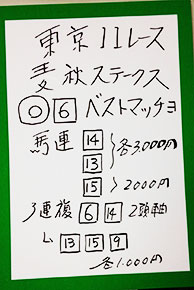 東京11レース
麦秋ステークス
◎ 6 ベストマッチョ
馬連 14 } 各3,000円
13
15 > 2000円
3連複 6 14 2頭軸
L 13 15 9
各1.000円